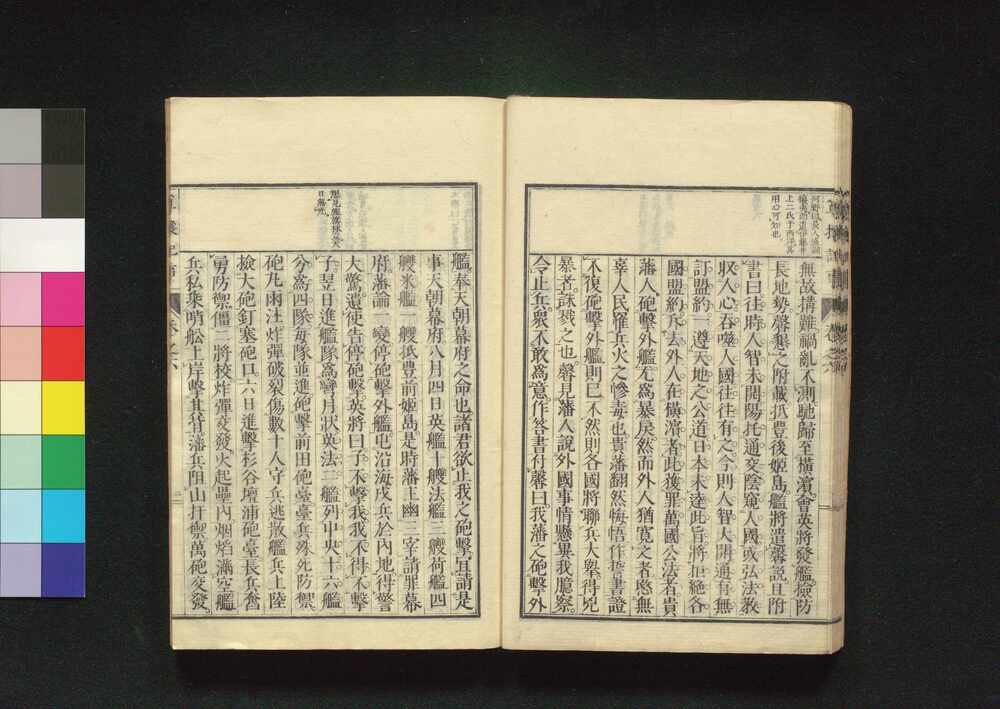 無故搆難禍亂不測馳歸至橫濱會英將發艦撿防
長地勢聲馨之附載抵豐後姬島艦將遣馨說且附
書曰往時人智未開陽托通交陰窺人國或弘法敎
收人心吞噬人國往往有之今則人智大開通有無
訂盟約一遵天地之公道日本未達此旨將拒絕各
國盟約斥去外人在橫濱者此獲罪萬國公法者貴
藩人砲擊外艦尤爲暴戾然而外人猶寬之者愍無
辜人民罹兵火之慘毒也貴藩翻然悔悟作誓書證
不復砲擊外艦則已不然則各國將聯兵大擧得兇
暴者誅戮之也馨見藩人說外國事情懸異我臆察
令止兵衆不敢爲意作答書付馨曰我藩之砲擊外
艦奉天朝幕府之命也諸君欲止我之砲擊宜請是
事天朝幕府八月四日英艦十艘法艦三艘荷艦四
艘米艦一艘抵豐前姬島是時藩主幽三宰請罪幕
府藩論一變停砲擊外艦屯沿海戍兵於內地得警
大驚遣使告停砲擊英將曰子不擊我我不得不擊
子翌日進艦隊爲彎月狀英法二艦列中央十六艦
分爲四隊每隊並進砲擊前田砲臺臺兵殊死防禦
砲丸雨注炸彈破裂傷數十人守兵逃散艦兵上陸
撿大砲釘塞砲口六日進擊杉谷壇浦砲臺長兵奮
勇防禦僵二將校炸彈交發火起壘內烟焰滿空艦
兵私乘哨船上岸擊其背藩兵阻山扞禦萬砲交發